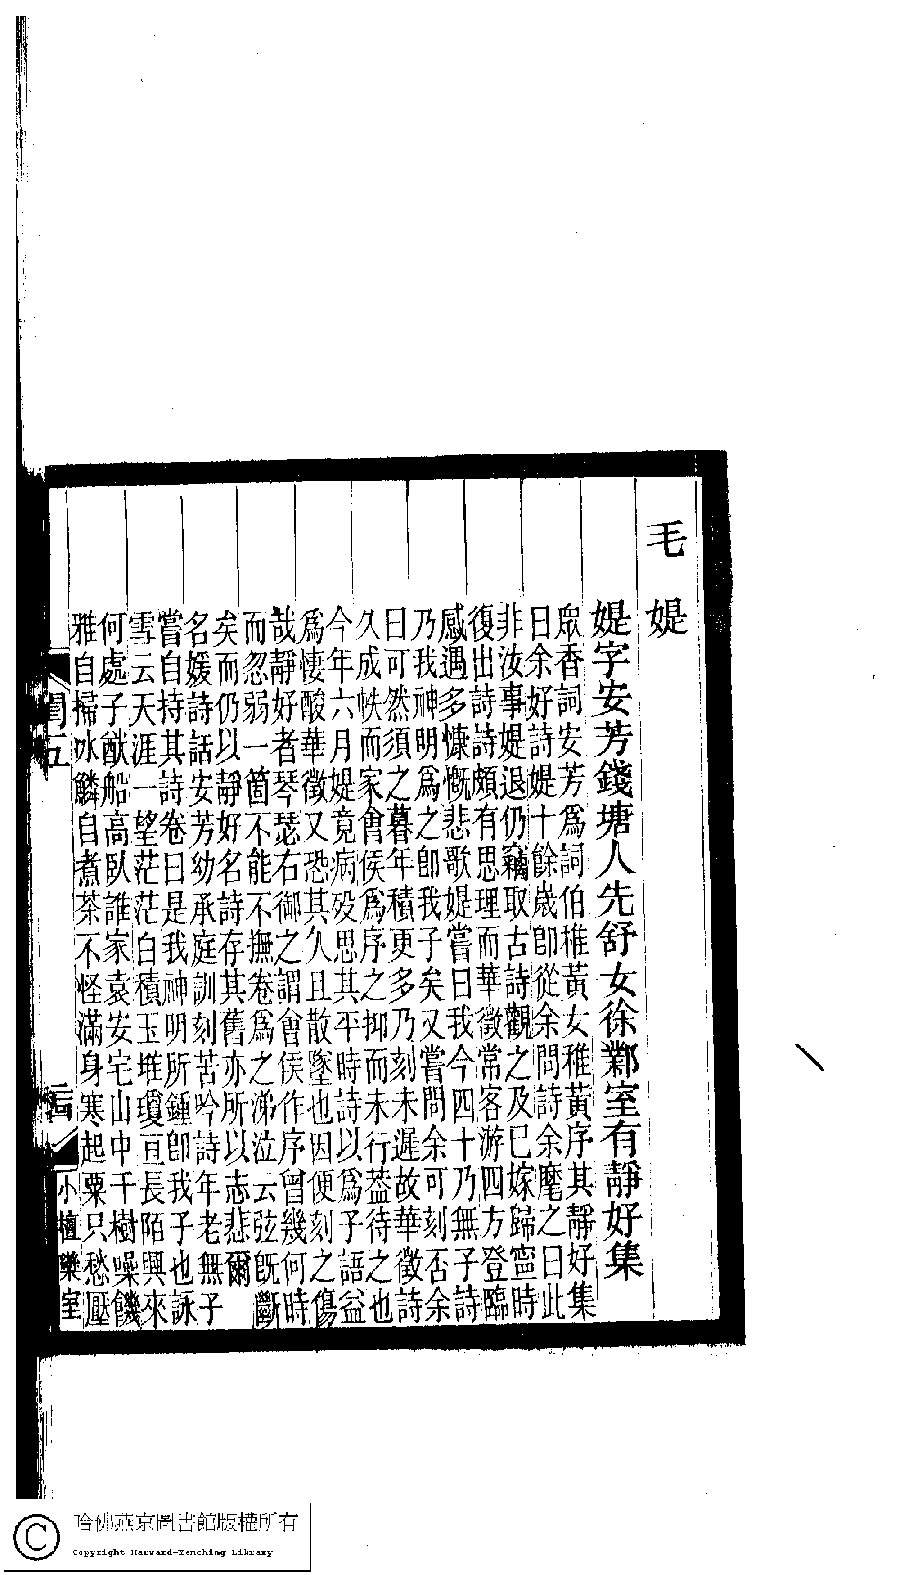 毛媞
媞字安芳錢塘人先舒女徐鄴室有靜好集
眾香詞安芳爲詞伯稚黃女稚黃序其靜好集
曰余好詩媞十餘歲卽從余問詩余麾之曰此
非汝事媞退仍竊取古詩觀之及已嫁歸寧時
復出詩詩頗有思理而華徵常客游四方登臨
感遇多慷慨悲歌媞嘗曰我今四十乃無子詩
乃我神明爲之卽我子矣又嘗問余可刻否余
曰可然須之暮年積更多乃刻未遲故華徵詩
久成帙而家會侯爲序之抑而未行葢待之也
今年六月媞竟病歿思其平時詩以爲子語益
爲悽酸華徵又恐其久且散墜也因便刻之傷
哉靜好者琴瑟右御之謂會侯作序曾幾何時
而忽弱一箇不能不撫卷爲之涕泣云弦旣斷
矣而仍以靜好名詩存其舊亦所以志悲爾
名媛詩話安芳幼承庭訓刻苦吟詩年老無子
嘗自持其詩卷曰是我神明所鍾卽我子也詠
雪云天涯一望茫茫白積玉堆瓊亘長陌興來
何處子猷船高臥誰家袁安宅山中千樹噪饑
雅自掃冰鱗自煮茶不怪滿身寒起粟只愁壓
閨五
小檀欒室
哈佛燕京圖書館版權所有
Copyright Harvard-Yenching Library